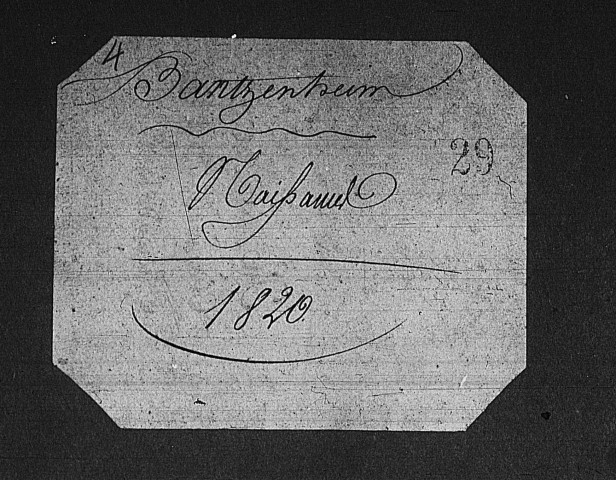 4
Bantzenheim
29
Naissances
1820